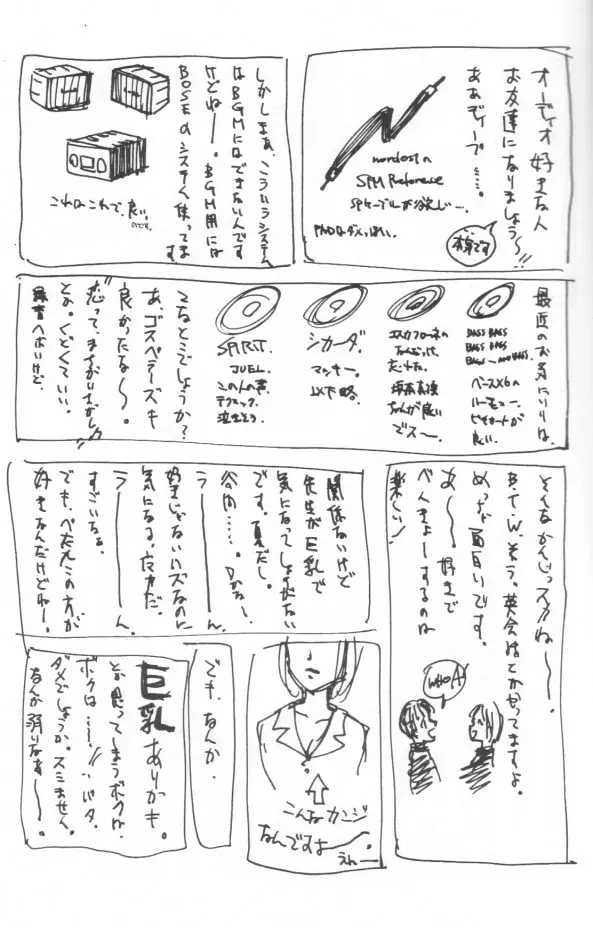 オーディオ好きな人
お友達になりましょう〜!!
ああディープ……。
nordostの
SPM Reference
SPケーブルが欲しい…。
本気です
しかしまあ、こういうシステム
はBGMにはできないんです
けどねー。BGM用には
BOSEのシステム使ってま
す
これはこれで、良い。
最近のお気にいりは、
BASS BASS
BASS BASS
ベース×6の
ハーモニー。
良い。
エスカフローネの
坂本真綾
ちゃんが良い
でスー。
シカーダ。
マッキー。
以下略
SPIRIT.
JUEL.
この人の声、
テクニック、
泣きそう。
こんなとこでしょうか?
あ、ゴスペラーズも
良かったな〜。
とか。くどくていい。
そんなかんじっスかねー。
B.T.W. そう。英会話とかやってますよ。
めっちゃ面白いです。
あ〜〜。好きで
べんきょーするのは
楽しい!
WHOA!
関係ないけど
先生が巨乳で
気になってしょうがない
です。夏だし。
谷間……。Dかなー
うーーーん。
好きじゃないハズなのに
気になる。魔力だ。
うーーーん。
すごいなあ。
でも、ぺたんこの方が
好きなんだけどねー。
こんなカンジ
なんですよ〜。
えへー
でも、なんか
巨乳
ありがも。
とか思ってしまうボクは、
ボクは……!!バタ。
ダメでしょうか。スミません。
なんか弱りなあ〜〜。